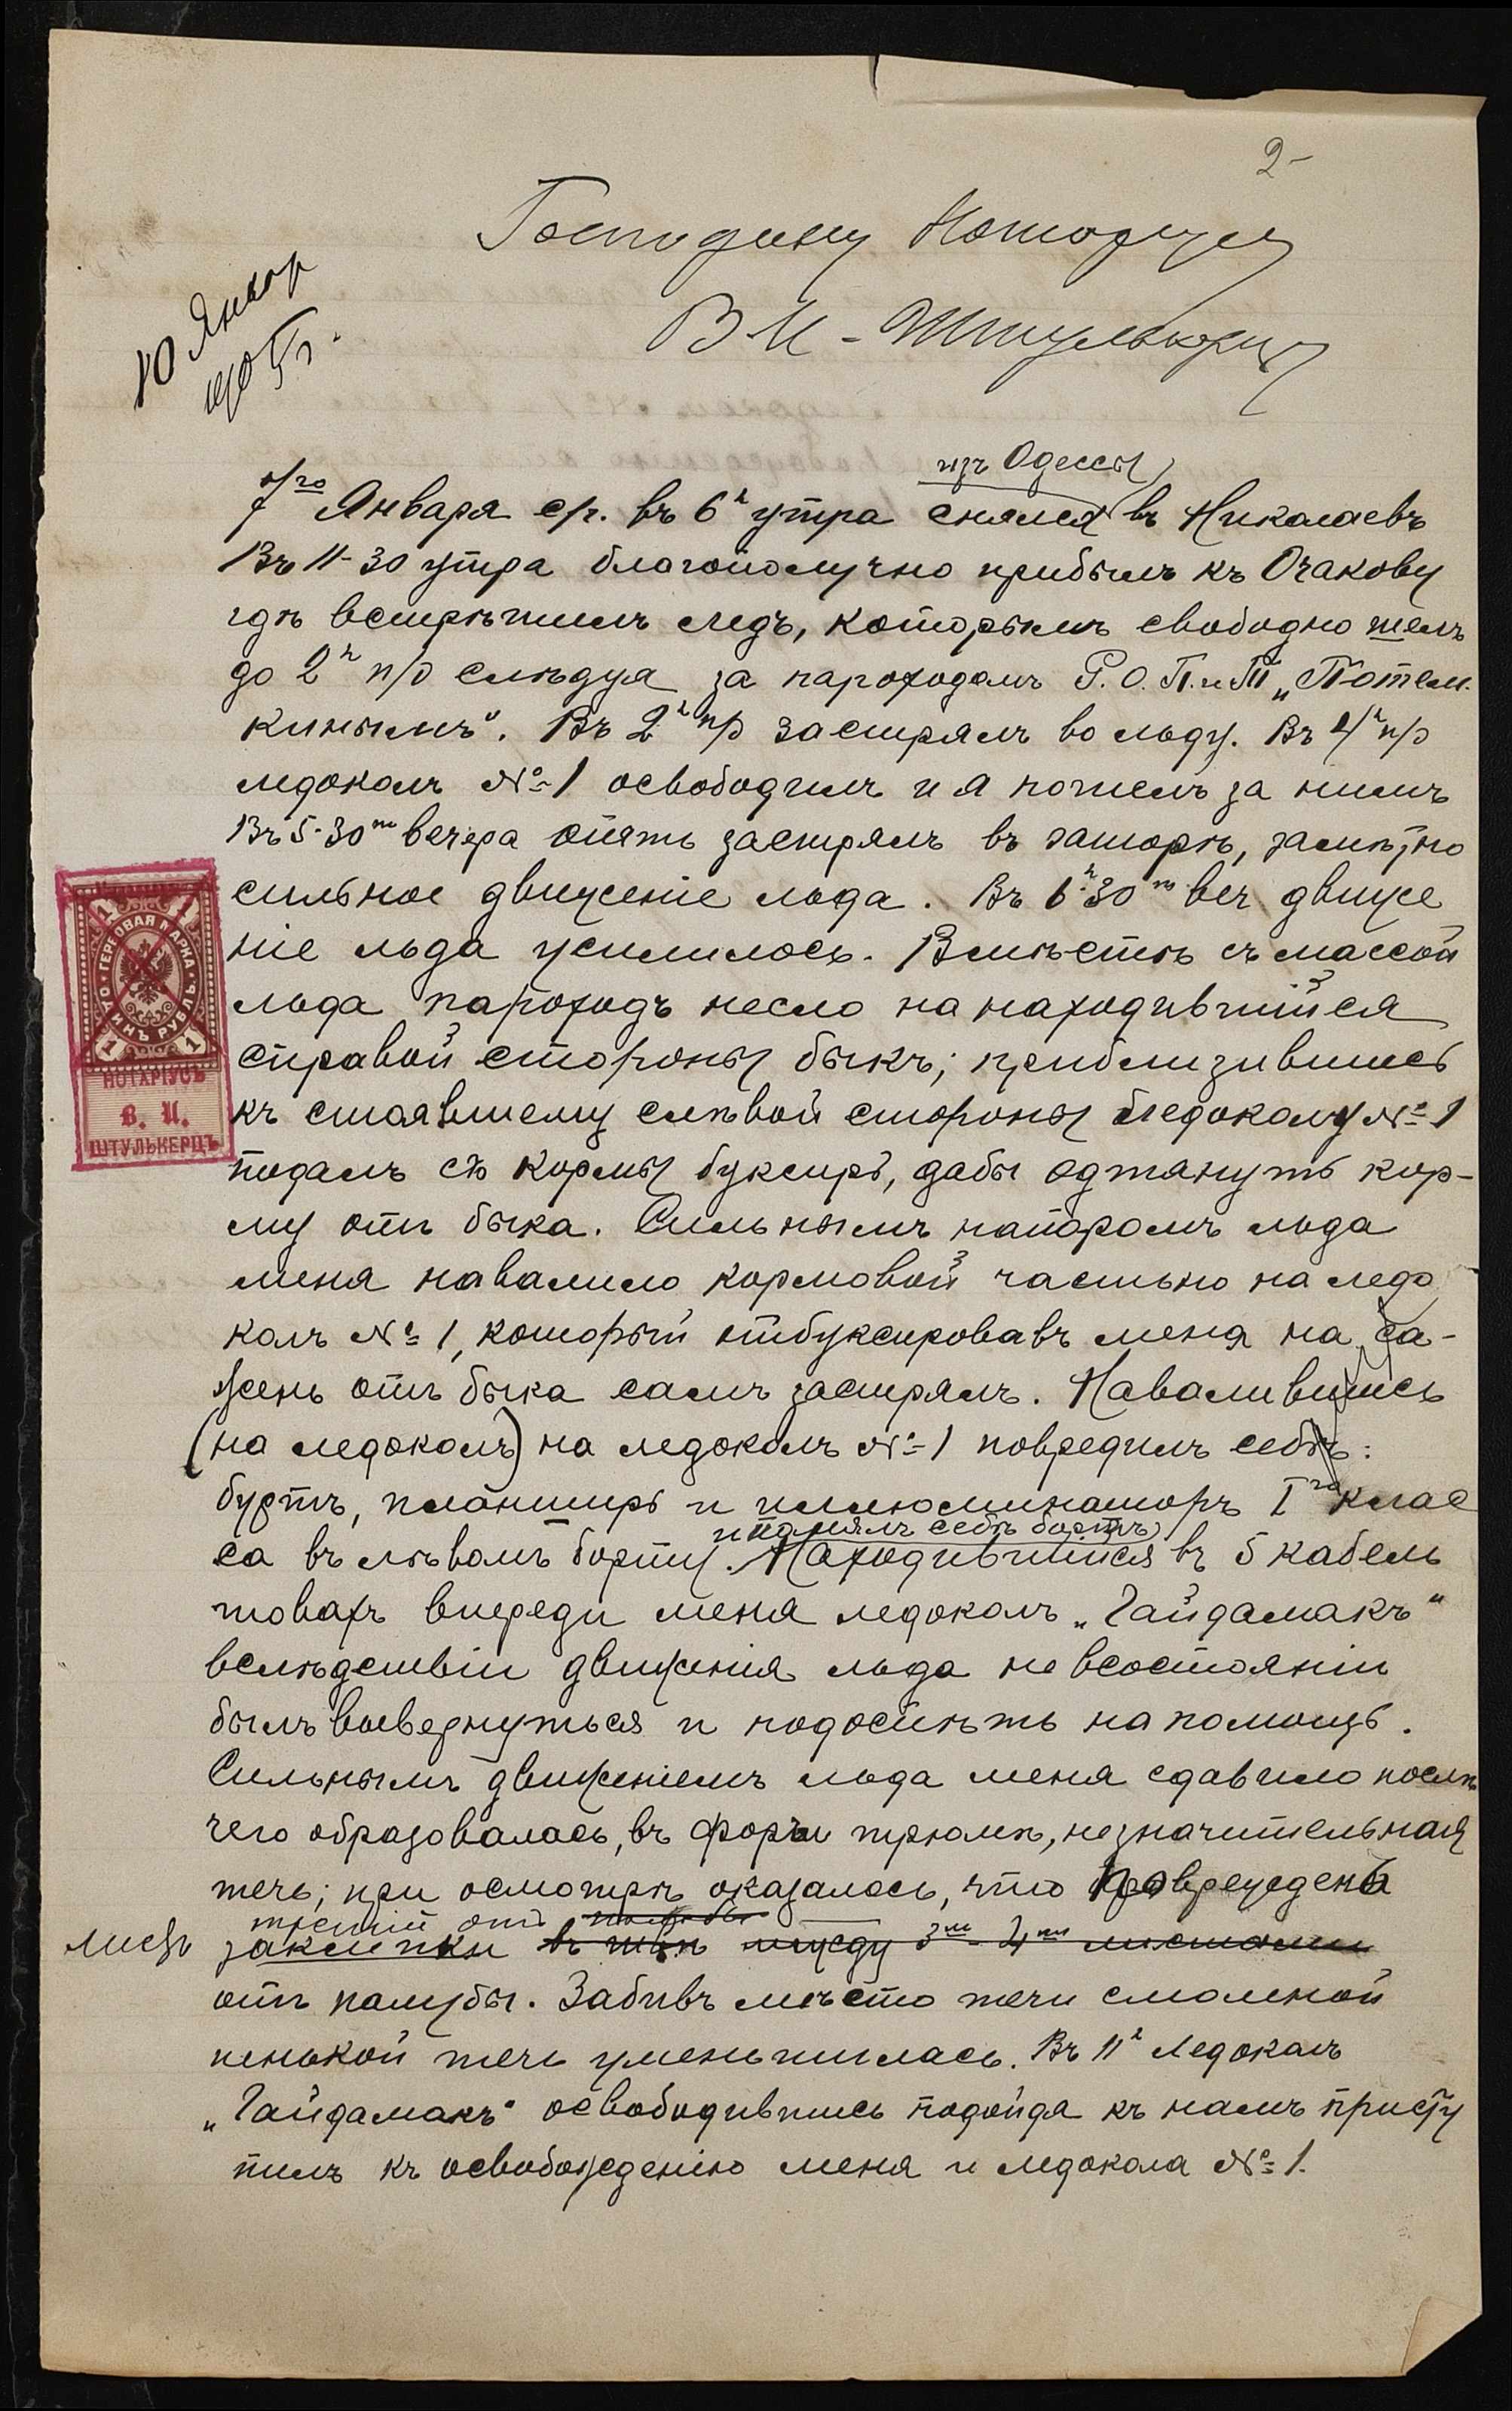 2-
Господину Нотариусу
В И - Штулькерцу
10 Январ
1905 г.
изъ Одессы
7го Января с/г. въ 6ч утра снялся въ Николаевъ
Въ 11-30 утра благополучно прибылъ къ Очакову
гдѣ встрѣтилъ ледъ, которымъ свободно шелъ
до 2ч п/о слѣдуя за пароходомъ Р. О. П. и Т „Потем-
кинымъ“. Въ 2ч п/о застрялъ во льду. Въ 4ч п/о
ледоколъ № 1 освободилъ и я пошелъ за нимъ
Въ 5-30м вечера опять застрялъ въ заторѣ, замѣтно
сильное движеніе льда. Въ 6ч 30м веч движе
ніе льда усилилось. Вмѣстѣ съ массой
льда пароходъ несло на находившійся
справой стороны быкъ; приблизившись
къ стоявшему слѣвой стороны ледоколу № 1
подалъ съ кормы буксиръ, дабы одтянуть кор-
му отъ быка. Сильнымъ напоромъ льда
меня навалило кормовой частью на ледо
колъ № 1, который отбуксировавъ меня на са-
жень отъ быка самъ застрялъ. Навалившись
(на ледоколъ) на ледоколъ № 1 повредилъ себѣ:
бурть, планширь и иллюминаторъ Iго клас
и помялъ себѣ бортъ
са въ лѣвомъ борту. Находившійся въ 5 кабель
товахъ впереди меня ледоколъ „Гайдамакъ“
вслѣдствіи движенія льда не всостояніи
былъ вывернуться и подоспѣть на помощь.
Сильнымъ движеніемъ льда меня сдавило послѣ
чего образовалась, въ форъ трюмѣ, незначительная
течь; при осмотрѣ оказалось, что поврежденъ
третій отъ палубы
листъ заклепки въ швѣ между 3м - 4м листами
отъ палубы. Забивъ мѣсто течи смоленой
пенькой течь уменьшилась. Въ 11ч Ледоколъ
„Гайдамакъ“ освободившись подойдя къ намъ присту
пилъ къ освобожденію меня и ледокола № 1.
ГЕРБОВАЯ МАРКА
ОДИНЪ РУБЛЬ
1 1 1 1
НОТАРІУСЪ
В. И.
ШТУЛЬКЕРЦЪ